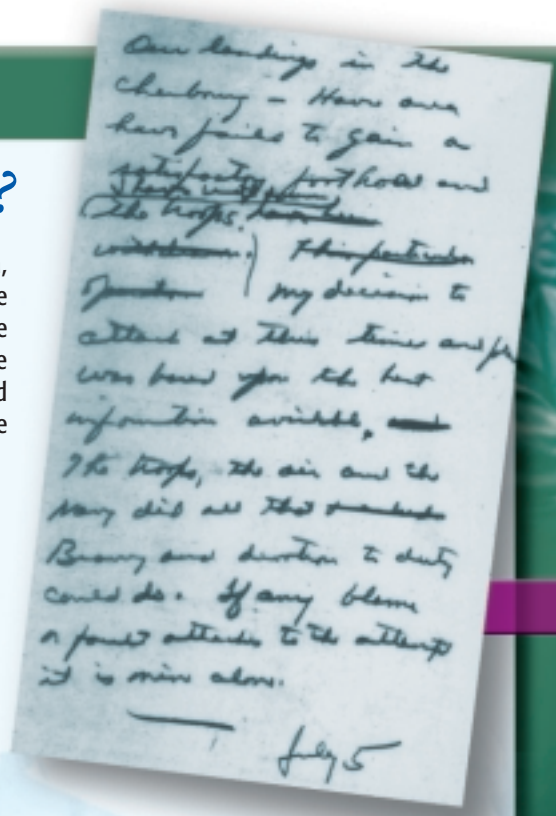 ?
,
e
e
e
d
e
Our landings in the
Cherbourg - Havre area
have failed to gain a
satisfactory foothold and
I have withdrawn
the troops. have been
withdrawn. This particular
operation my decision to
attack at this time and
was based upon the best
information available, and
The troops, the air and the
Navy did all that
Bravery and devotion to duty
could do. If any blame
or fault attaches to the attempt
it is mine alone.
July 5